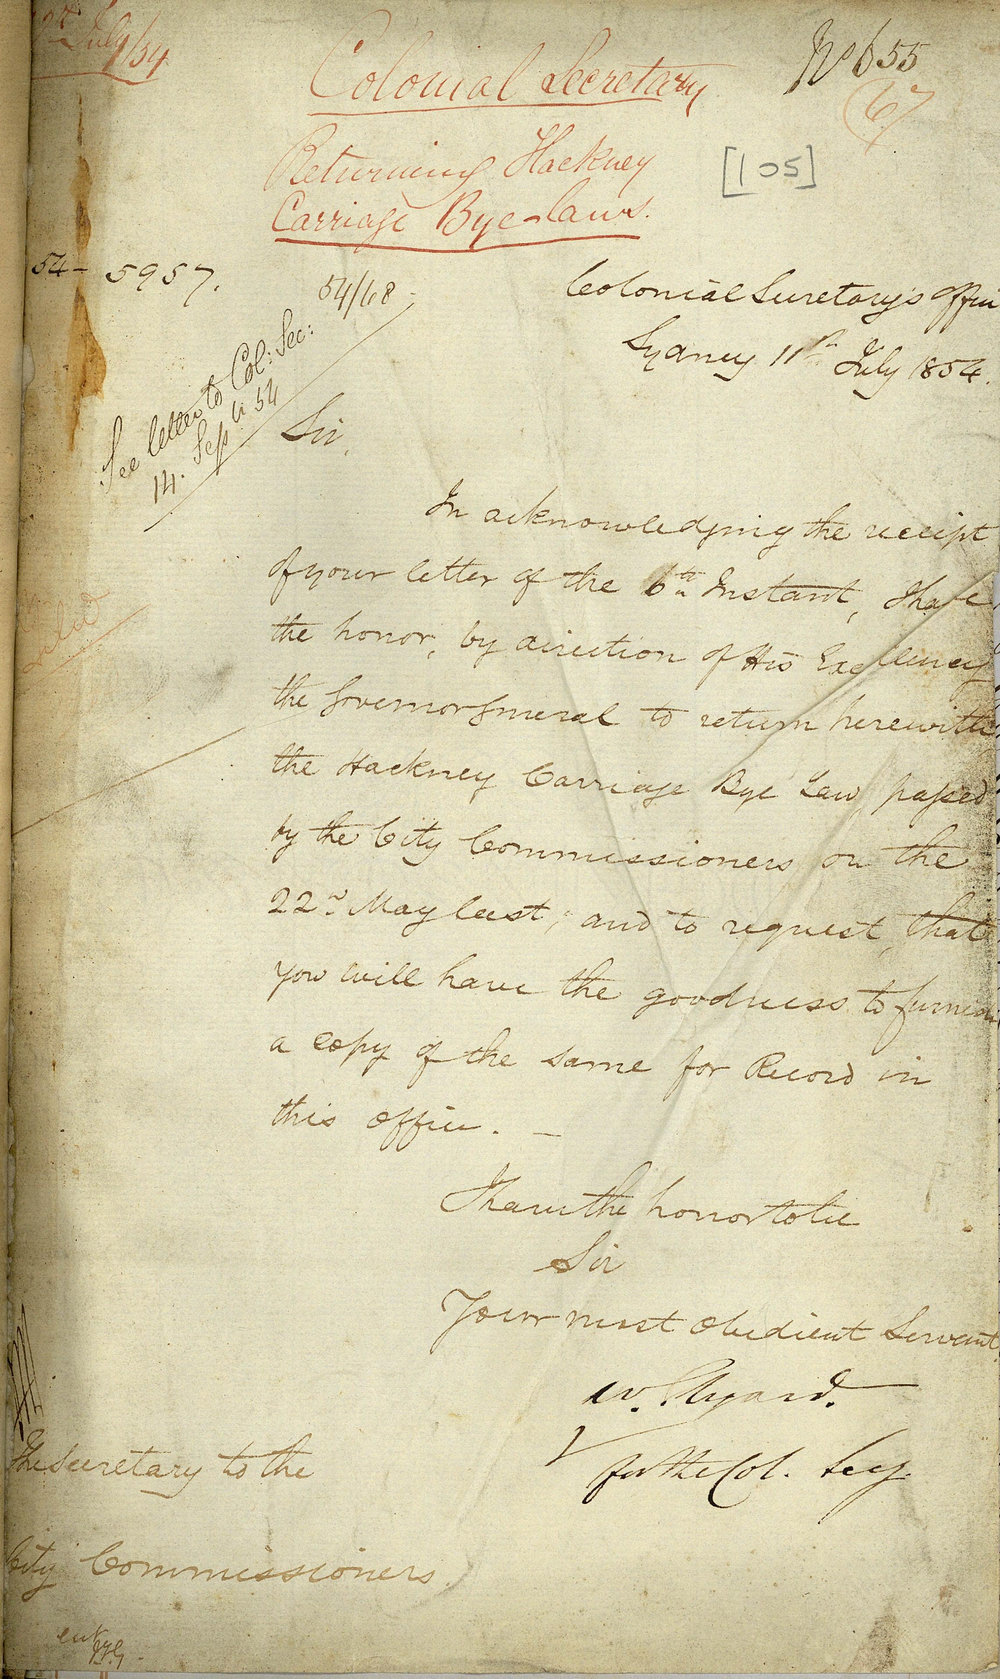 July/54
Colonial Secretary
No 655
67
Returning Hackney
Carriage Bye-laws.
[105]
54-5957.
54/68
Colonial Secretary's Office
Sydney 11th July 1854.
See letter to Col: Sec:
14. Sept. 54
Sir,
In acknowledging the receipt
of your letter of the 6th Instant, I have
the honor, by direction of His Excellency
the Governor General to return herewith
the Hackney Carriage Bye Law, passed
by the City Commissioners on the
22nd May last, and to request, that
you will have the goodness to furnish
a copy of the same for Record in
this Office.
I have the honor to be
Sir
Your most obedient Servant
W. Elyard.
for the Col. Secy.
The Secretary to the
City Commissioners.